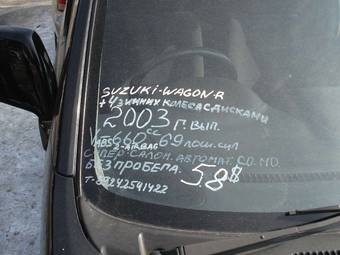 SUZUKI-WAGON-R
+ 4 ЗИМНИХ КОЛЕСА С ДИСКАМИ
2003 Г. ВЫП.
V-660cc 69 лош. сил
ABS 2-AIRBAG
СУПЕР-САЛОН. АВТОМАТ. CD. MD.
БЕЗ ПРОБЕГА. 5.8$
Т-89242541422